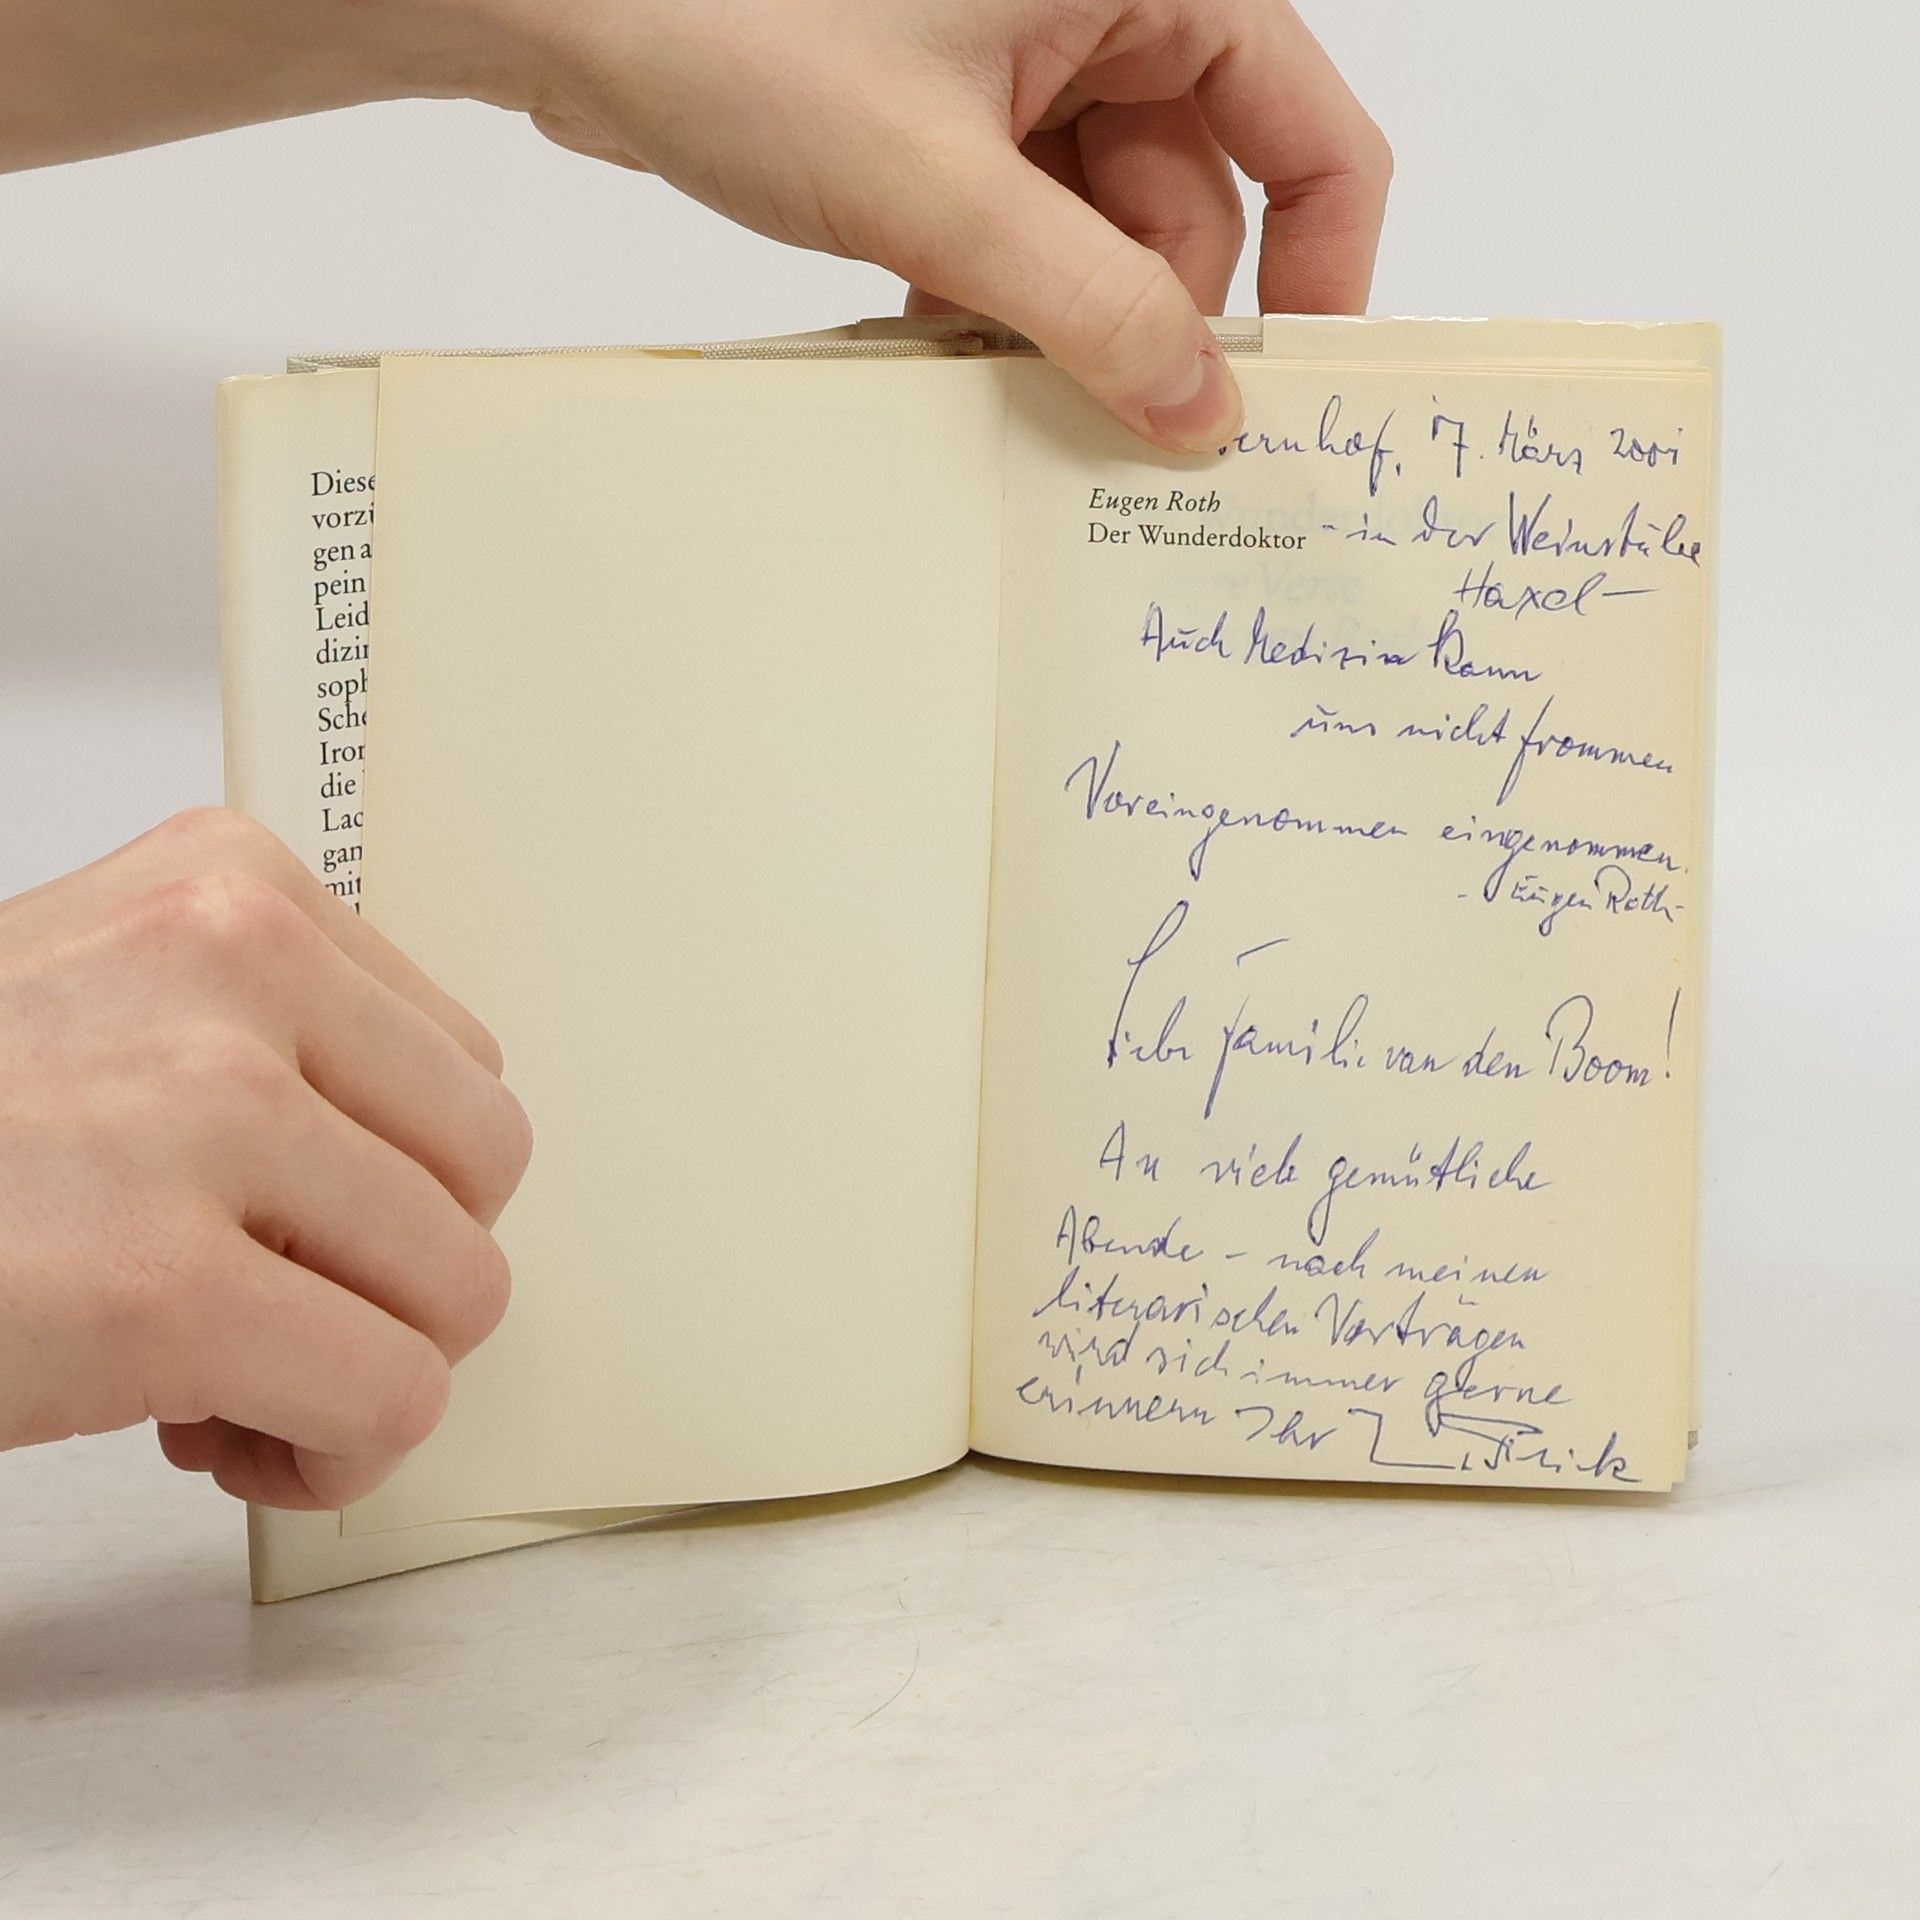 Diese
vorzü
gen a
pein
Leid
dizin
soph
Sche
Iron
die
Lac
gan
mit
Eugen Roth
Der Wunderdoktor
ernhof, 17. März 2001
- in der Weinstube
Haxel -
Auch Medizin kann
uns nicht frommen
Voreingenommen eingenommen.
- Eugen Roth -
Liebe Familie van den Boom!
An viele gemütliche
Abende - nach meinen
literarischen Vorträgen
wird sich immer gerne
erinnern Ihr